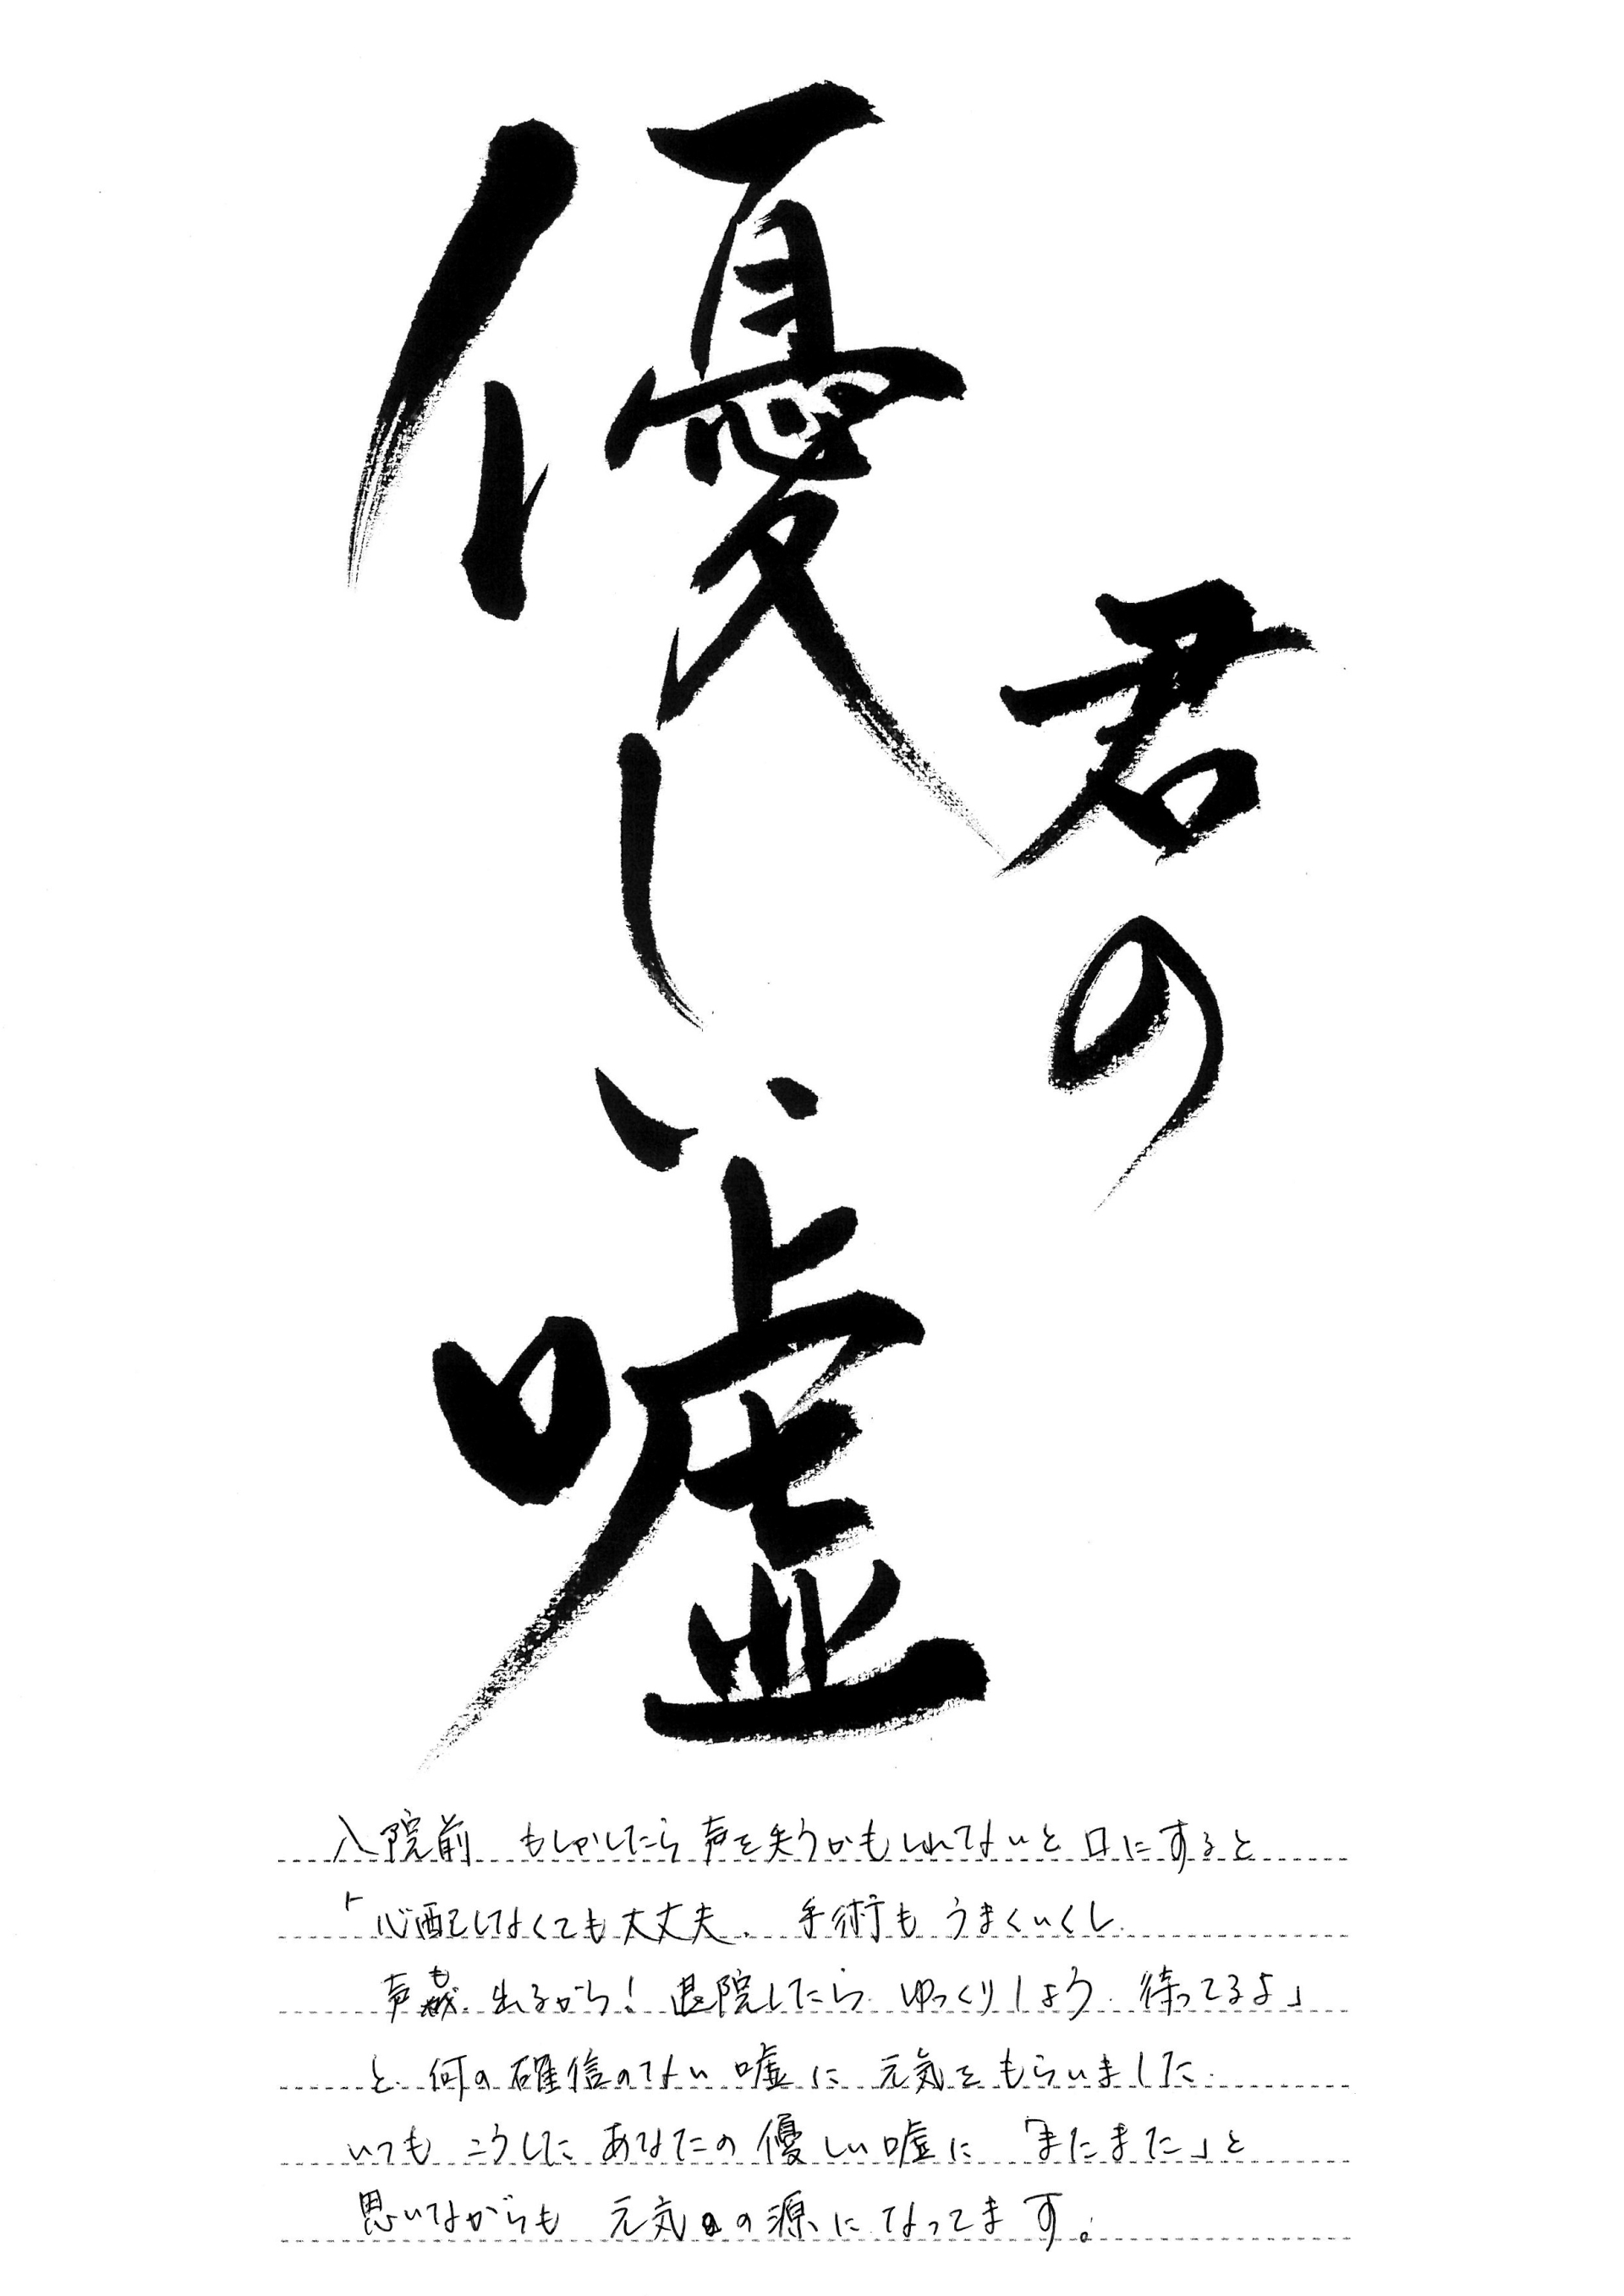 君の
優しい嘘
入院前 もしかしたら声を失うかもしれないと口にすると
「心配しなくても大丈夫、手術もうまくいくし
声も出るから！退院したらゆっくりしよう 待ってるよ」
と何の確信のない嘘に元気をもらいました
いつもこうしたあなたの優しい嘘に「またまた」と
思いながらも 元気の源になってます。